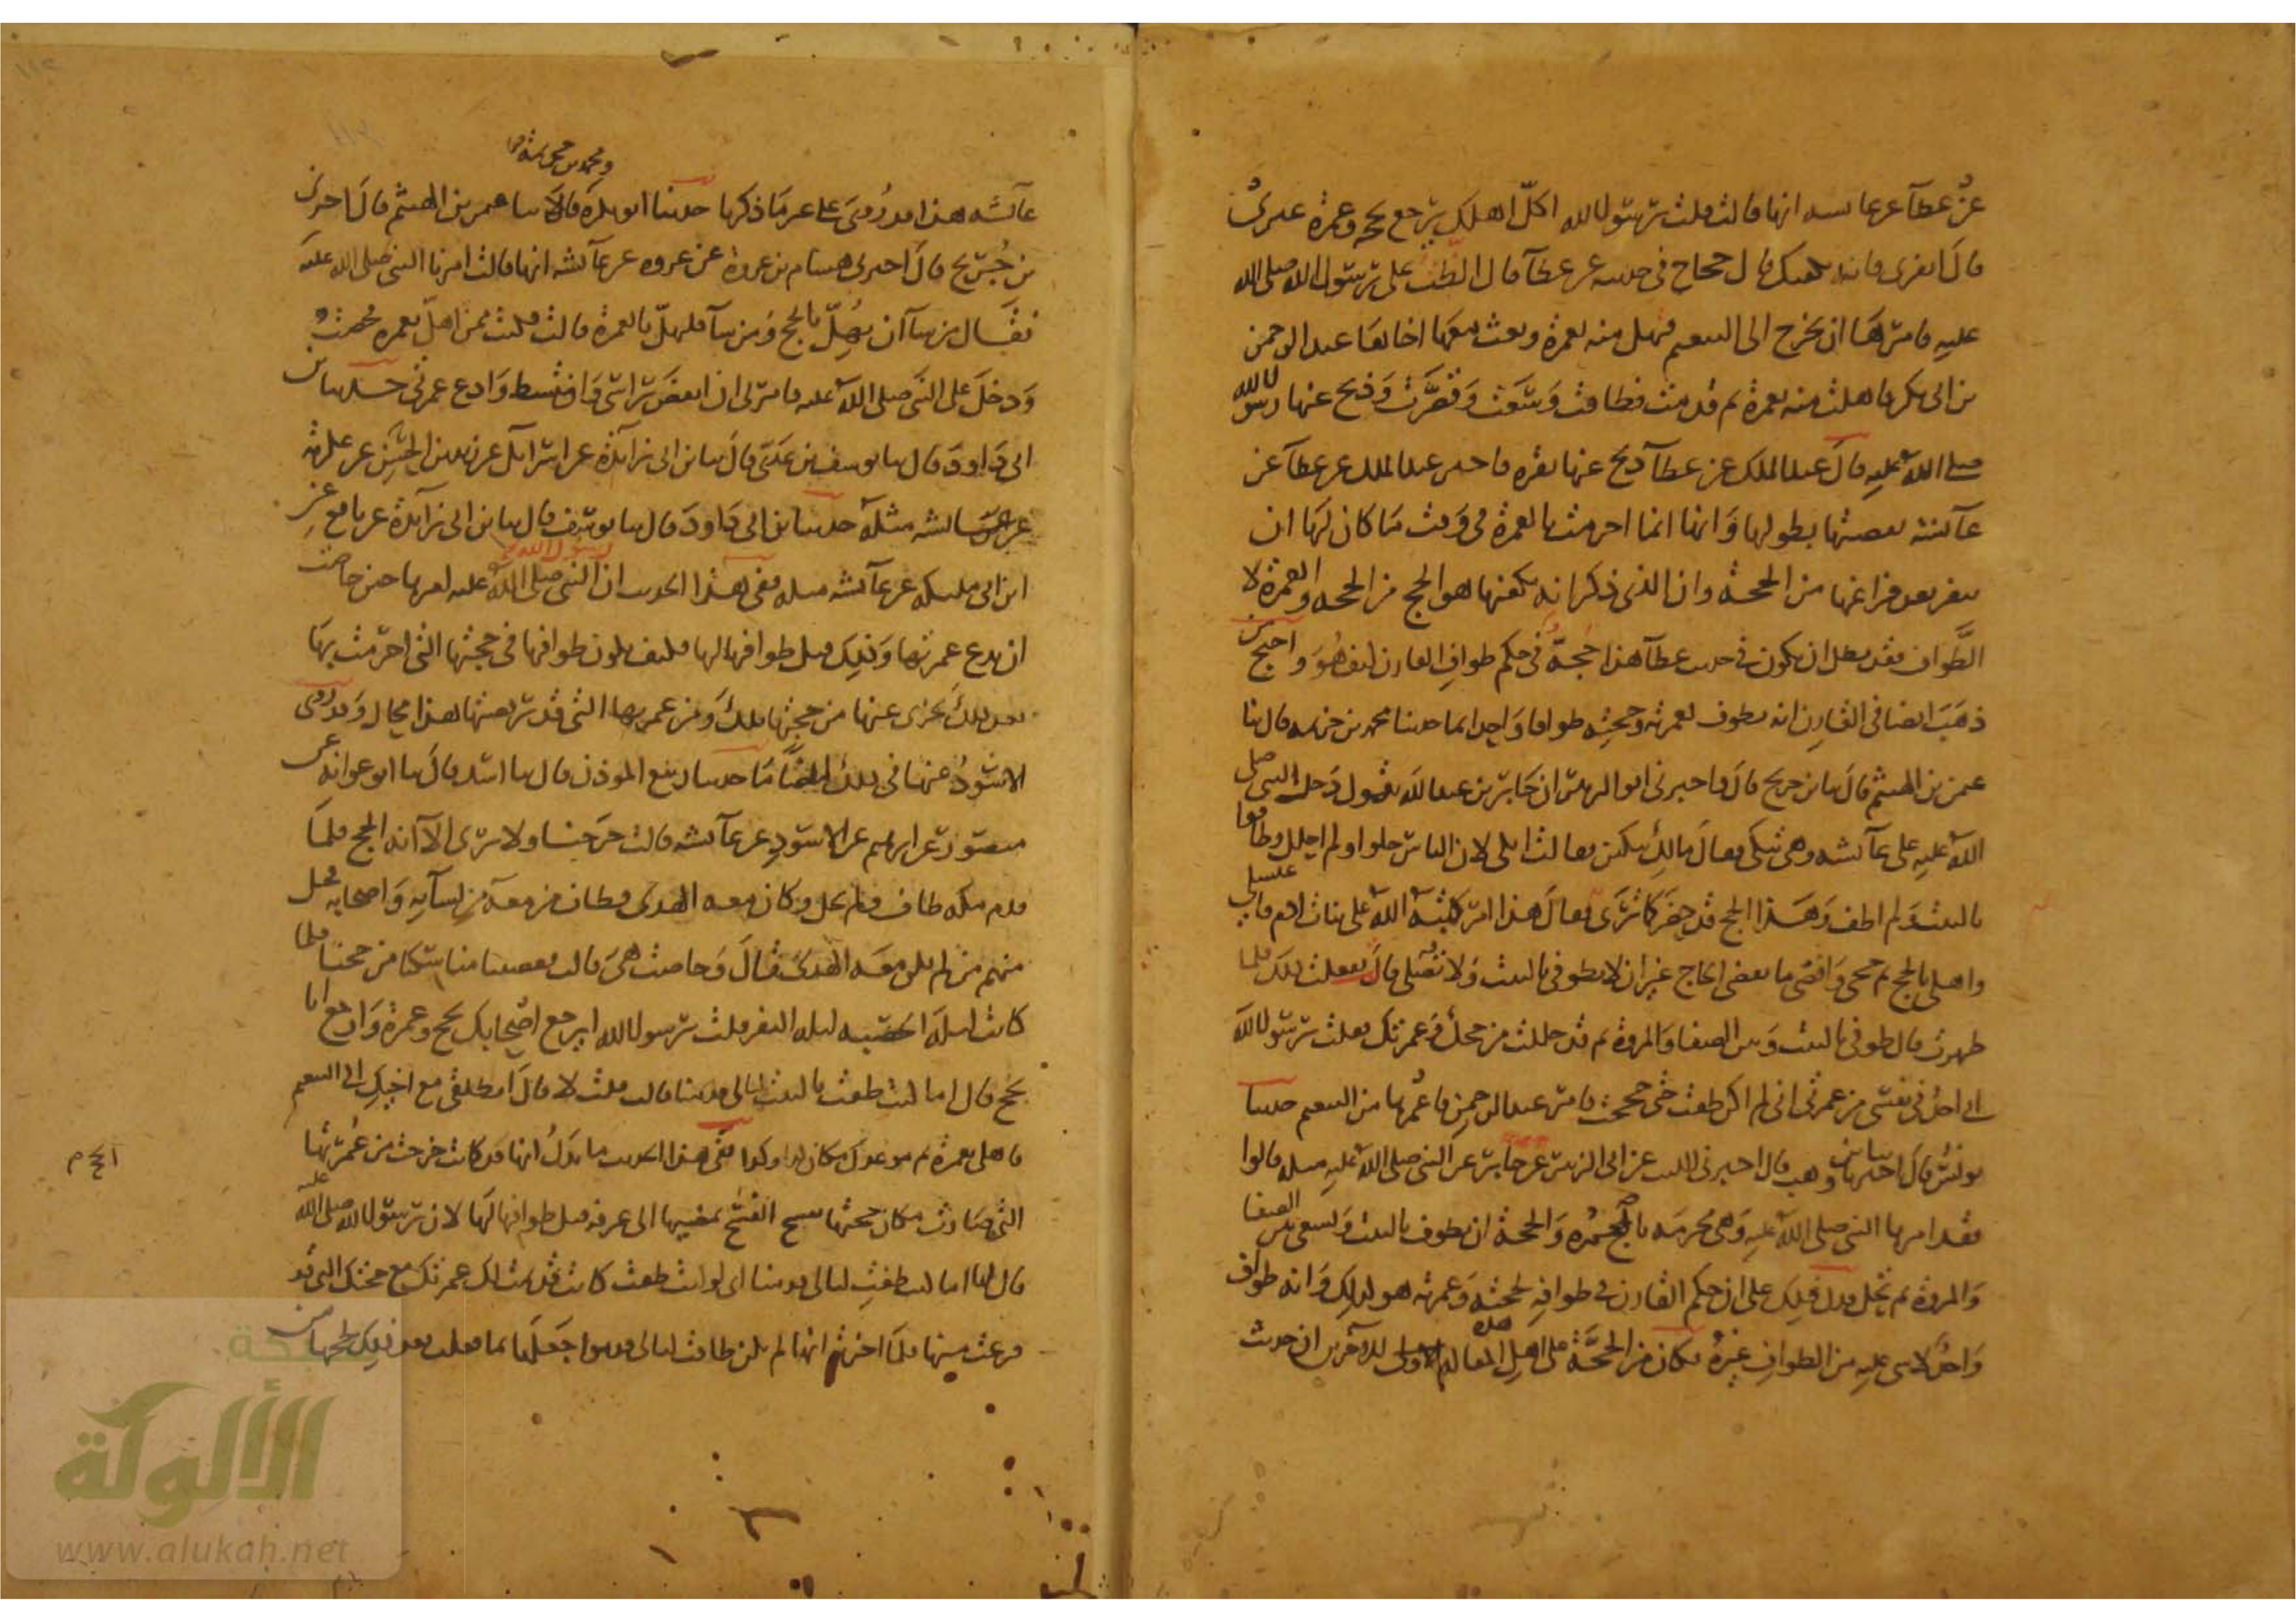 عن عطاء عن عائشة انها قالت قلت يرسول الله اكل اهلك يرجع بحجة وعمرة غيري
قال انفري فانه يكفيك قال حجاج في حديثه عن عطاء قال الظت على رسول الله صلى الله
عليه فامرها ان تخرج الى التنعيم فتهل منه بعمرة وبعث معها اخاها عبد الرحمن
بن ابي بكر فاهلت منه بعمرة ثم قدمت فطافت وسعت وقصرت وذبح عنها رسول الله
صلى الله عليه قال عبد الملك عن عطاء ذبح عنها بقره فاخبر عبد الملك عن عطاء عن
عائشة بقصتها بطولها وانها انما احرمت بالعمرة في وقت ما كان لها ان
تنفر بعد فراغها من الحجة وان الذي ذكر انه يكفيها هو الحج من الحجة والعمرة لا
الطواف فقد بطل ان يكون في حديث عطاء هذا حجة في حكم طواف القارن كيف هو واحتج من
ذهب ايضا في القارن انه يطوف لعمرته وحجته طوافا واحدا بما حدثنا محمد بن خزيمه قال ثنا
عثمن بن الهيثم قال ثنا بن جريج قال واخبرني ابو الزبير ان جابر بن عبد الله يقول دخل النبي صلى
الله عليه على عائشه وهي تبكي فقال مالك تبكين فقالت ابكي لان الناس حلوا ولم احلل وطافوا
بالبيت ولم اطف وهذا الحج قد حضر كما ترى فقال هذا امر كتبه الله على بنات ادم فاغتسلي
واهلي بالحج ثم حجي واقضي ما يقضي الحاج غير ان لا تطوفي بالبيت ولا تصلي قال ففعلت ذلك فلما
طهرت قال طوفي بالبيت وبين الصفا والمروة ثم قد حللت من حجك وعمرتك فقلت يرسول الله
اني اجد في نفسي من عمرتي اني لم اكن طفت حتى حججت فامر عبد الرحمن فاعمرها من التنعيم حدثنا
يونس قال اخبرنا بن وهب قال اخبرني الليث عن ابي الزبير عن جابر عن النبي صلى الله عليه مثله قالوا
فقد امرها النبي صلى الله عليه وهي محرمه بالعمرة والحجة ان تطوف بالبيت وتسعى بين الصفا
والمروة ثم تحل فدل ذلك على ان حكم القارن في طوافه لحجته وعمرته هو كذلك وانه طواف
واحد لا شي عليه من الطواف غيره فكان من الحجة على اهل هذه المقالة للآخرين ان حديث
ومحمد بن خزيمة
عائشه هذا قد روي على غير ما ذكرنا حدثنا ابو بكرة قالا ثنا عثمن بن الهيثم قال اخبرنا
بن جريج قال اخبرني هشام بن عروة عن عروه عن عائشه انها قالت امرنا النبي صلى الله عليه
فقال من شاء ان يهل بالحج ومن شاء فليهل بالعمرة قالت فكنت ممن اهل بعمره فحضت
ودخل على النبي صلى الله عليه فامرني ان انقض راسي وامتشط وادع عمرتي حدثنا بن
ابي داود قال ثنا يوسف بن عدي قال ثنا بن ابي زائدة عن اسرائيل عن عن عكرمة
عن عائشه مثله حدثنا بن ابي داود قال ثنا يوسف قال ثنا بن ابي زائدة عن نافع عن
ابن ابي مليكه عن عائشه مثله ففي هذا الحديث ان النبي صلى الله عليه امرها حين حاضت
ان تدع عمرتها وذلك قبل طوافها لها فكيف يكون طوافها في حجتها التي احرمت بها
بعد ذلك يجزي عنها من حجتها تلك ومن عمرتها التي قد رفضتها هذا محال وقد روى
الاسود عنها في ذلك ايضا ما حدثنا ربيع الموذن قال ثنا اسد قال ثنا ابو عوانه عن
منصور عن ابرهيم عن الاسود عن عائشه قالت خرجنا ولا نرى الا انه الحج فلما
قدم مكه طاف فلم يحل وكان معه الهدى فطاف من معه من نسائه واصحابه فحل
منهم من لم يكن معه الهدى قال وحاضت هي قالت فقضينا مناسكنا من حجنا فلما
كانت ليلة الحصبه ليله النفر قلت يرسول الله ايرجع اصحابك بحج وعمرة وارجع انا
بحج قال اما كنت طفت بالبيت ليالي قدمنا قالت قلت لا قال انطلقي مع اخيك الى التنعيم
فاهلي بعمرة ثم موعدك مكان كذا وكذا ففي هذا الحديث ما يدل انها قد كانت خرجت من عمرتها
التي صارت مكان حجتها بفسخ الحج بمضيها الى عرفه قبل طوافها لها لان رسول الله صلى الله عليه
الحج م
قال لها اما كنت طفت ليالي قدمنا اي لو كنت طفت كانت قد تمت لك عمرتك مع حجتك التي قد
فرغت منها فلما اخبرته انها لم تكن طافت ليالي قدموا جعلها بما فعلت بعد ذلك لحجها من
الألوكة
www.alukah.net